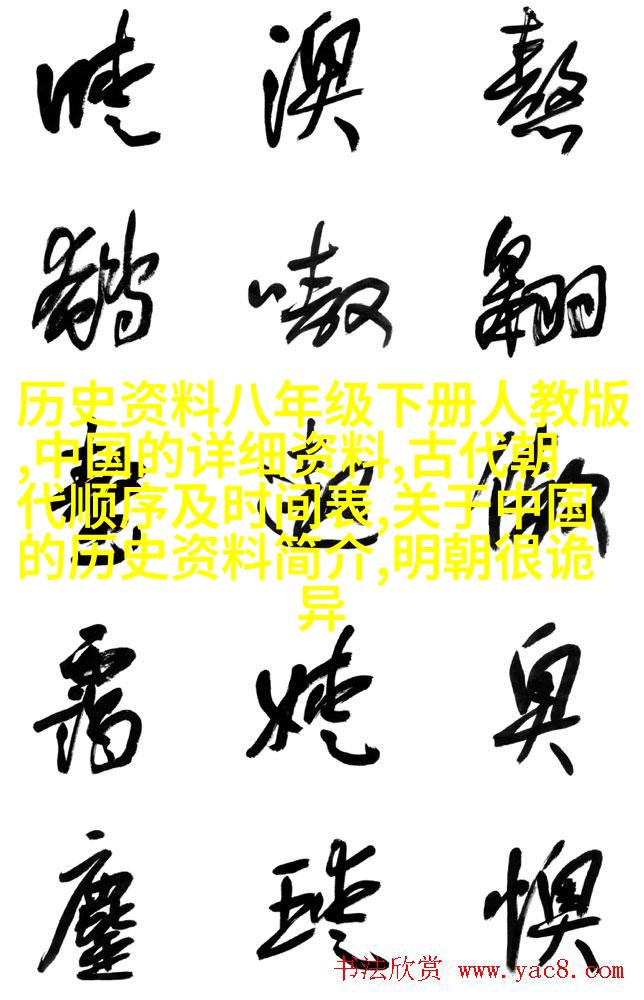 澳 熬
嗷 翱
历史资料八年级下册人教版
,中国的详细资料,古代朝
代顺序及时间表,关于中国
的历史资料简介,明朝很诡
异
霭 奥
鏖 懊
书法欣赏 www.yac8.com